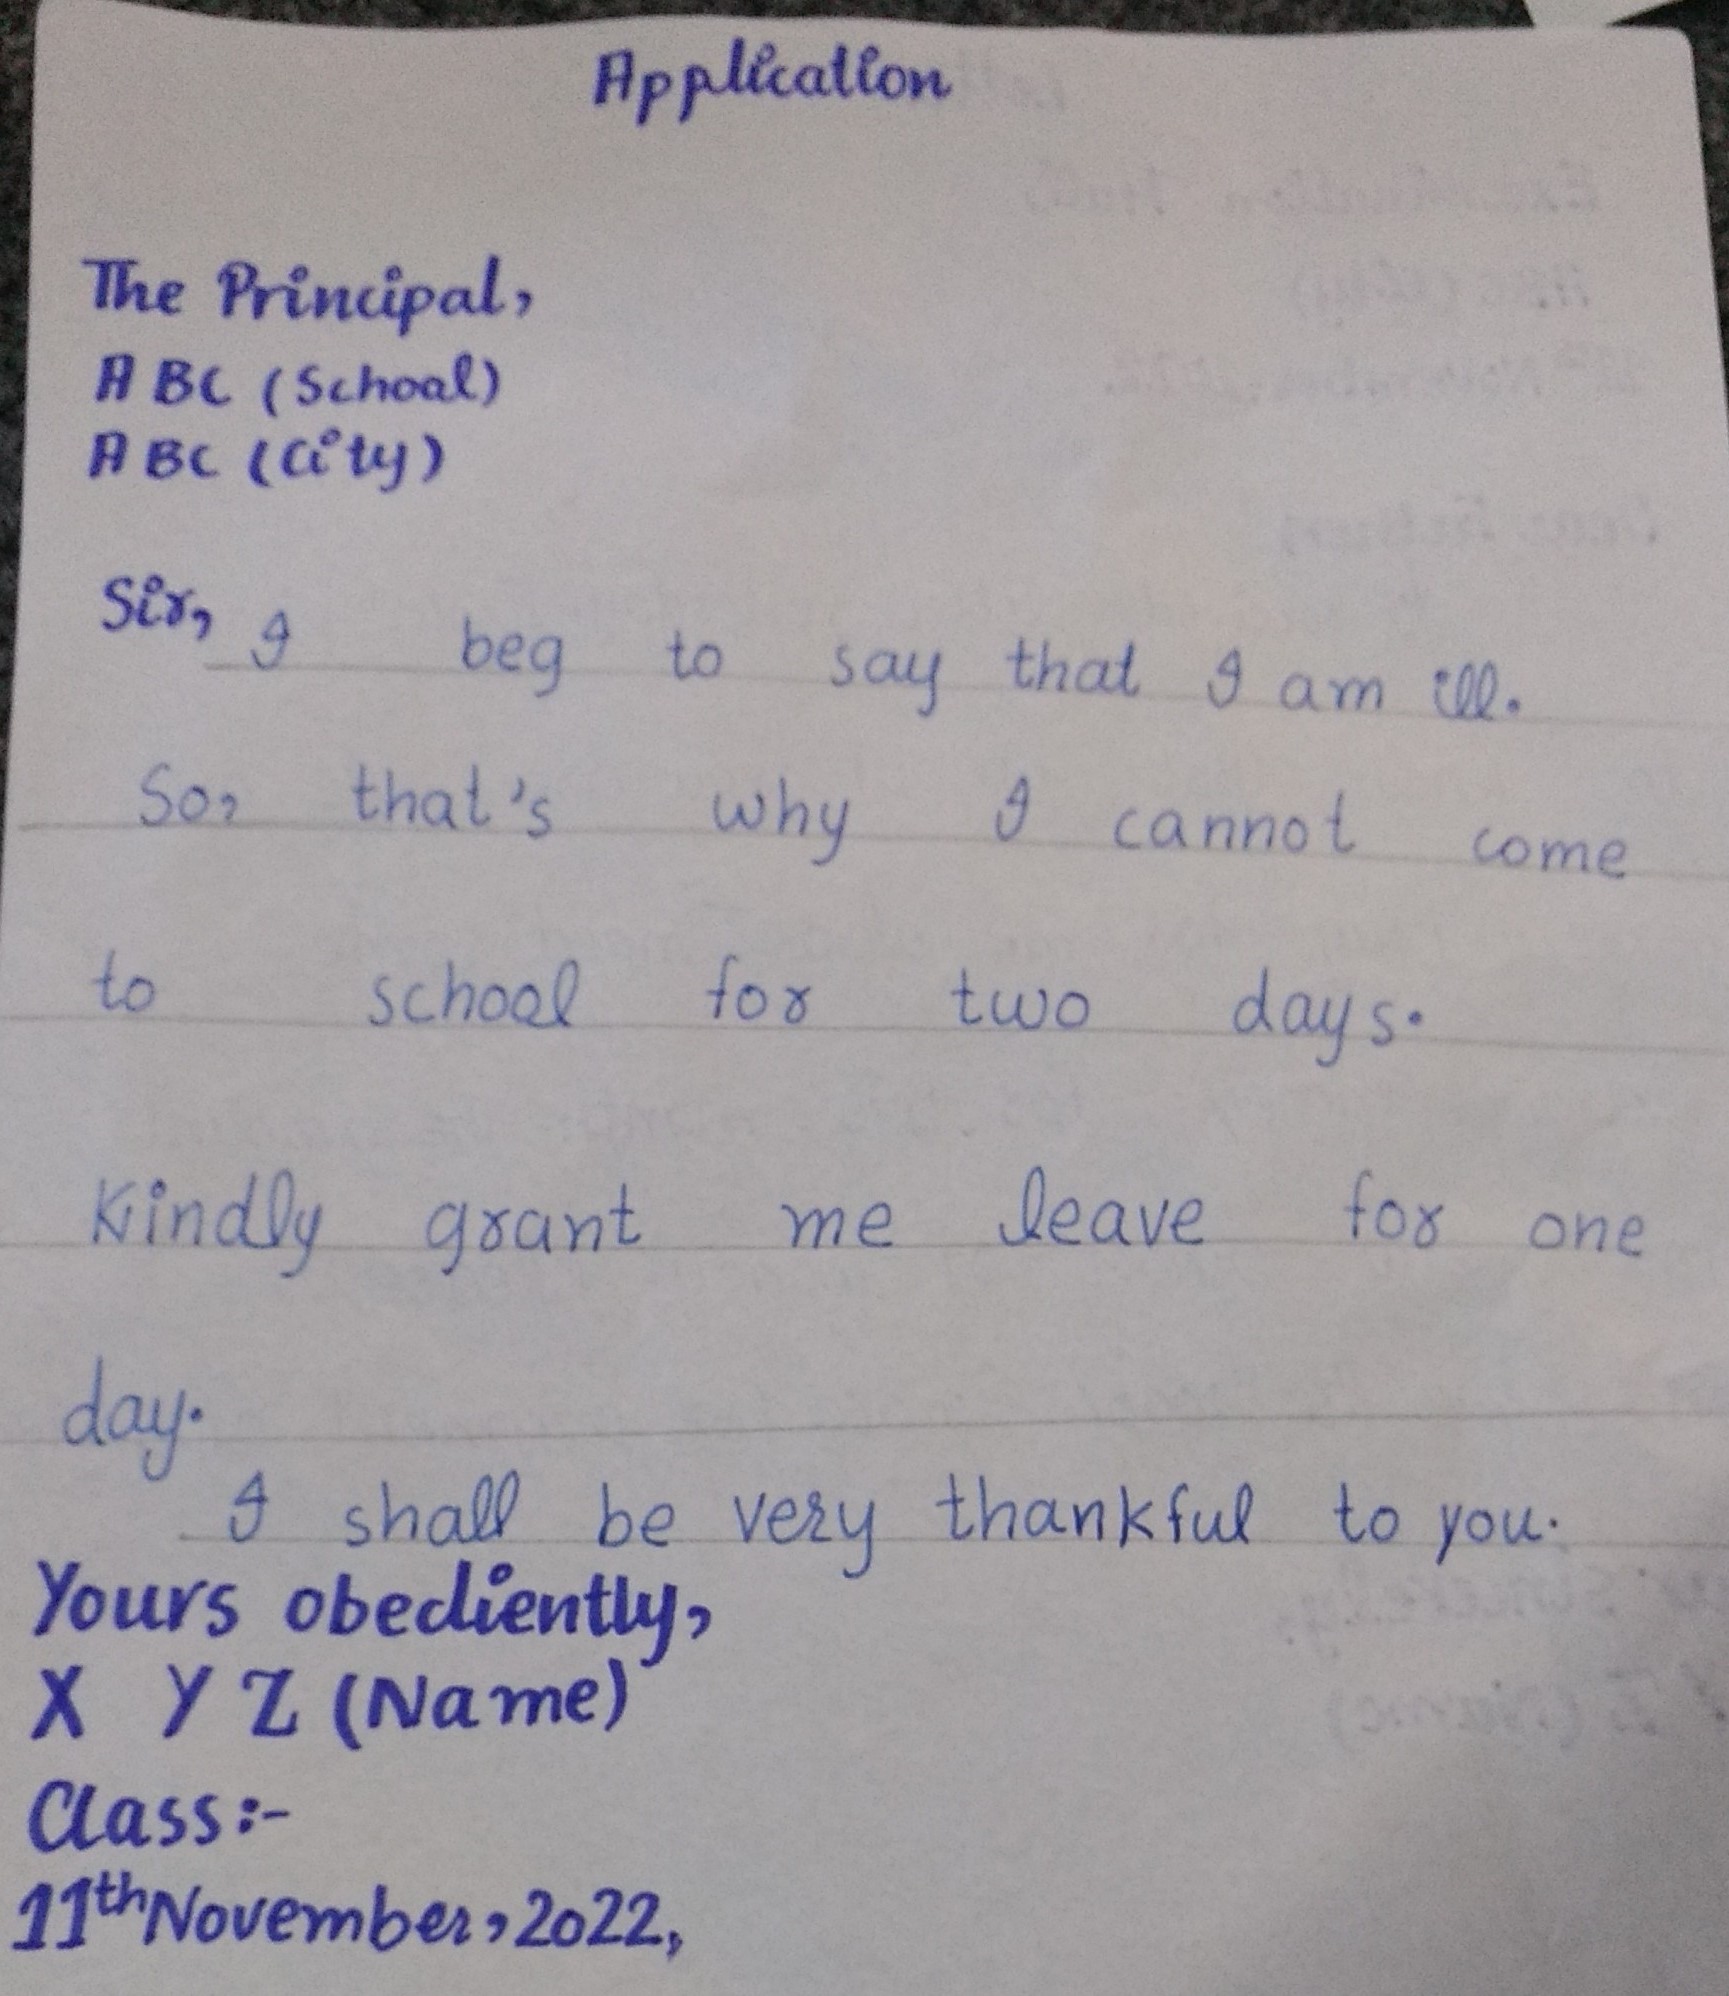 Application
The Principal,
ABC (School)
ABC (City)
Sir,
I beg to say that I am ill.
So, that's why I cannot come
to school for two days.
Kindly grant me leave for one
day.
I shall be very thankful to you.
Yours obediently,
X Y Z (Name)
Class:-
11th November, 2022,